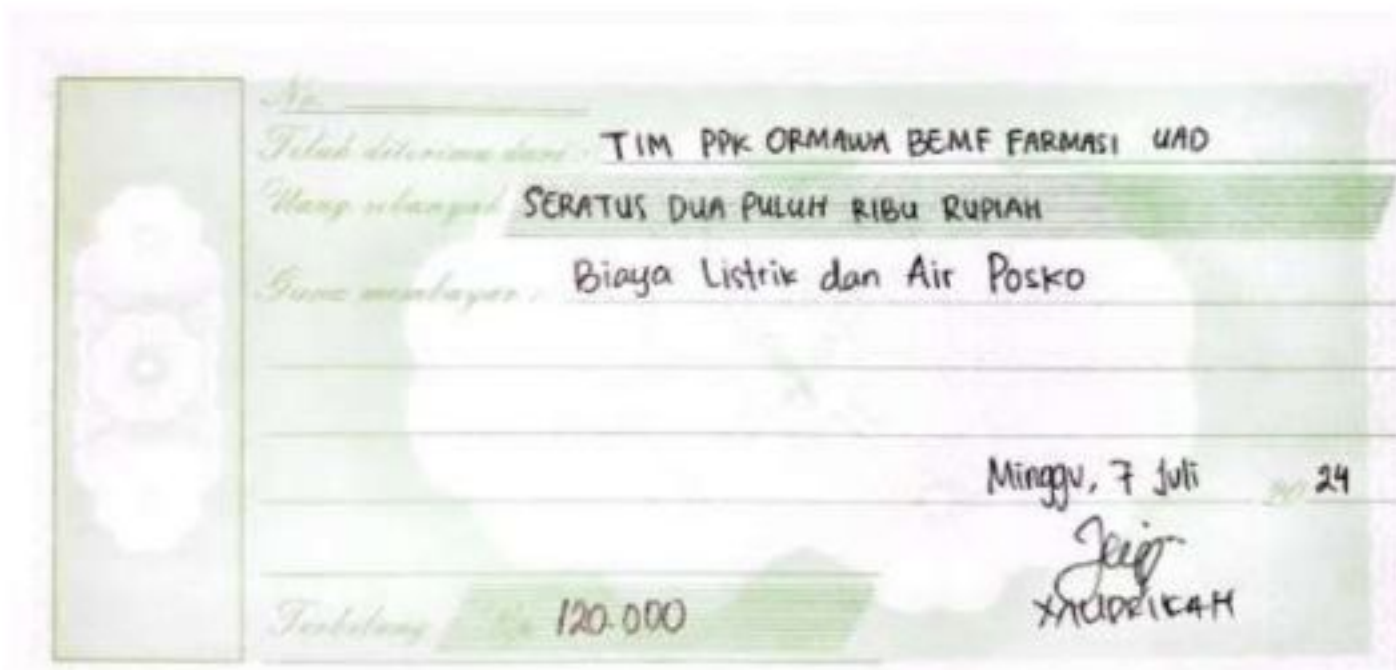 No.
Telah diterima dari : TIM PPK ORMAWA BEMF FARMASI UAD
Uang sebanyak SERATUS DUA PULUH RIBU RUPIAH
Guna membayar : Biaya Listrik dan Air Posko
Minggu, 7 Juli 20 24
Terbilang Rp 120.000